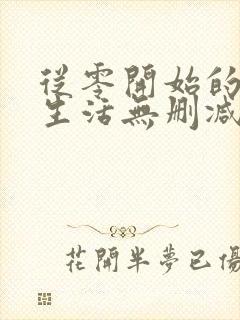 從零開始的
生活無刪減
花開半夢已傷